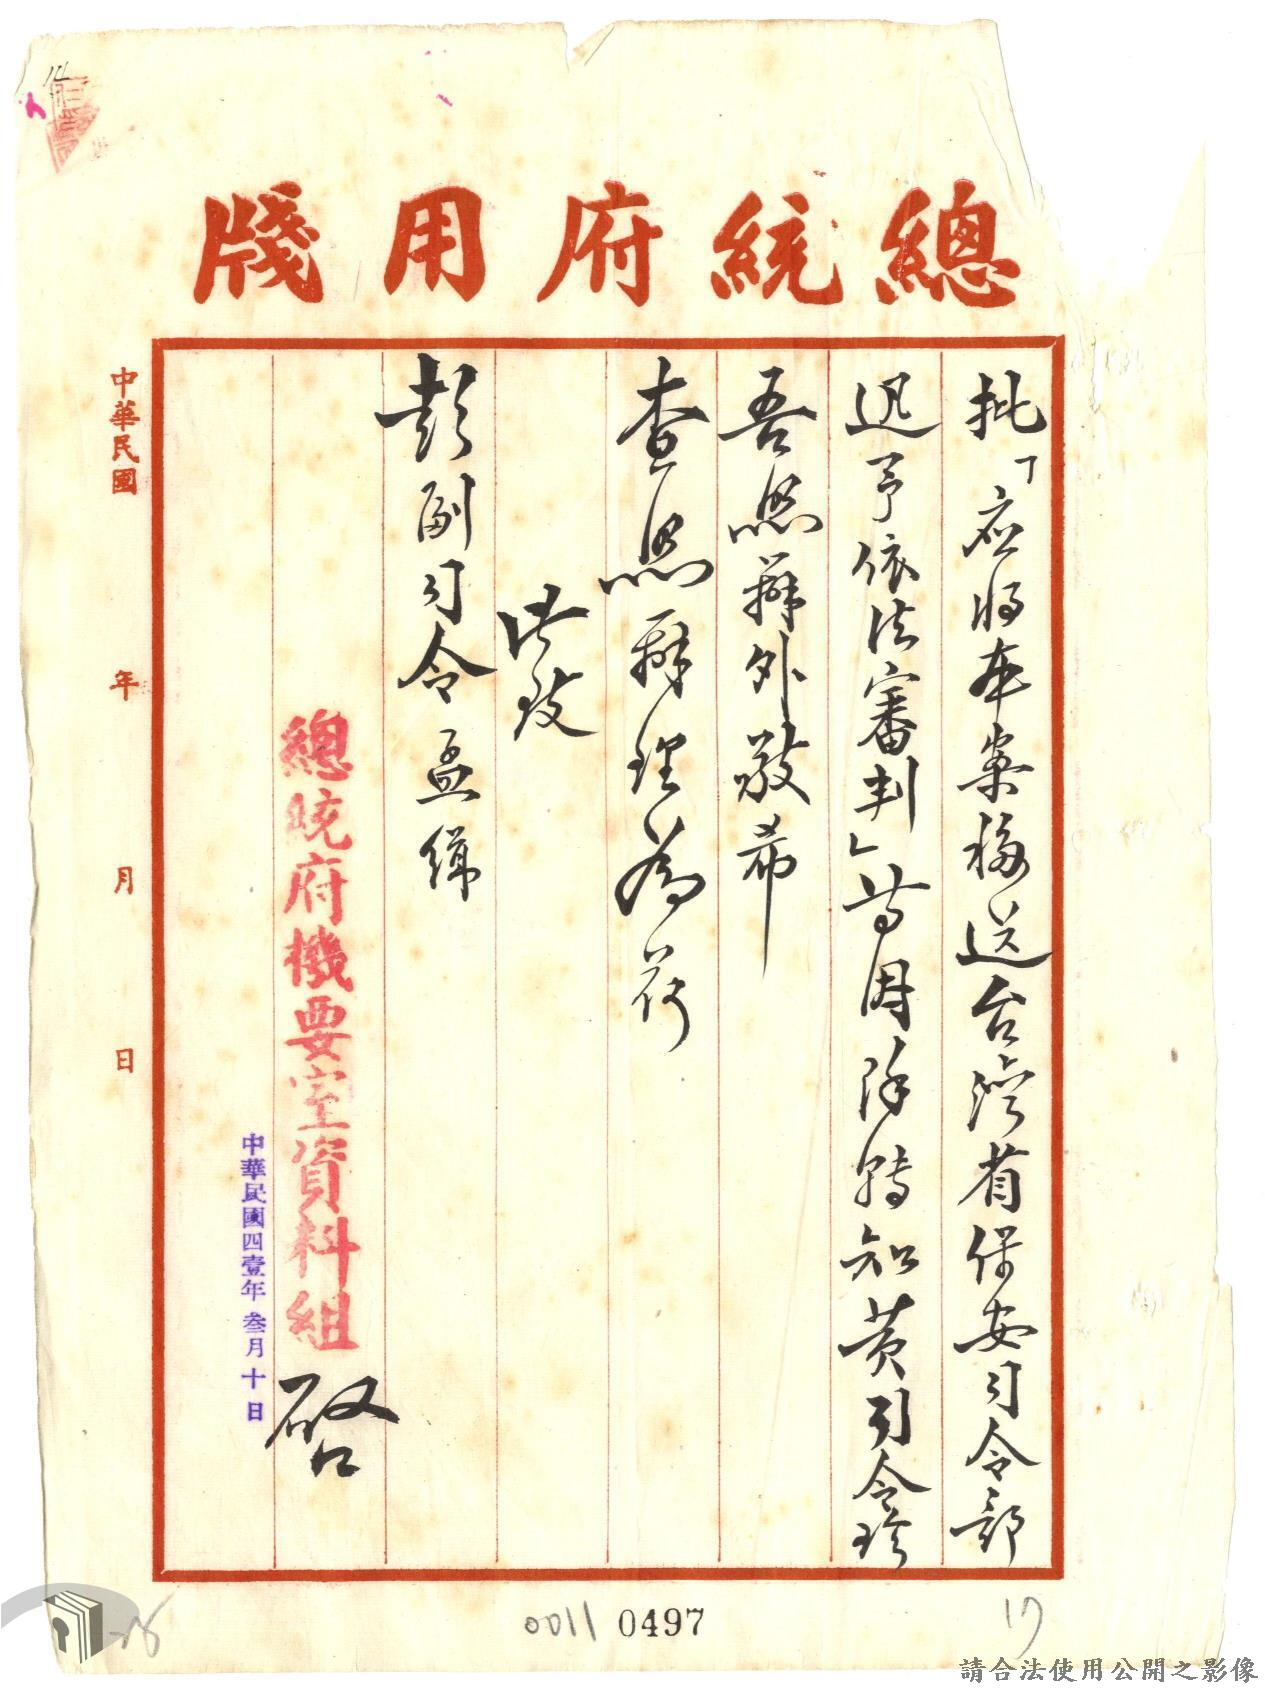 總統府用牋
批「应将本案移送台灣省保安司令部
迅予依法審判」等因除轉知黄司令珍
吾照辦外敬希
查照辦理為荷
此致
彭副司令孟緝
總統府機要室資料組 啓
中華民國四壹年叁月十日
中華民國 年 月 日
0011 0497
17
請合法使用公開之影像